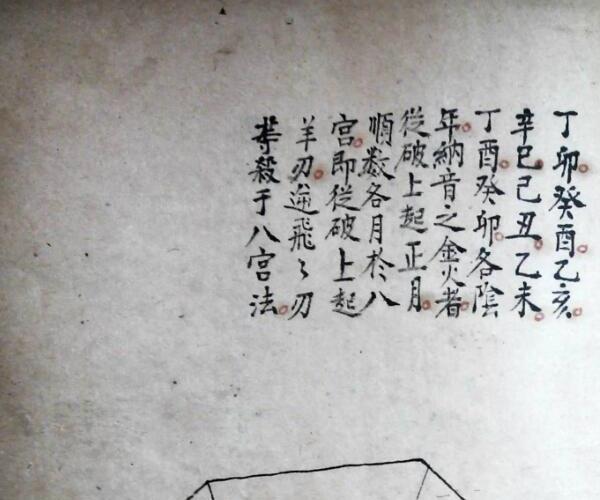 丁卯癸酉乙亥
辛巳己丑乙未
丁酉癸卯各陰
年納音之金火者
從破上起正月
順数各月於八
宮即從破上起
羊刃逆飛〻刃
等殺于八宮法